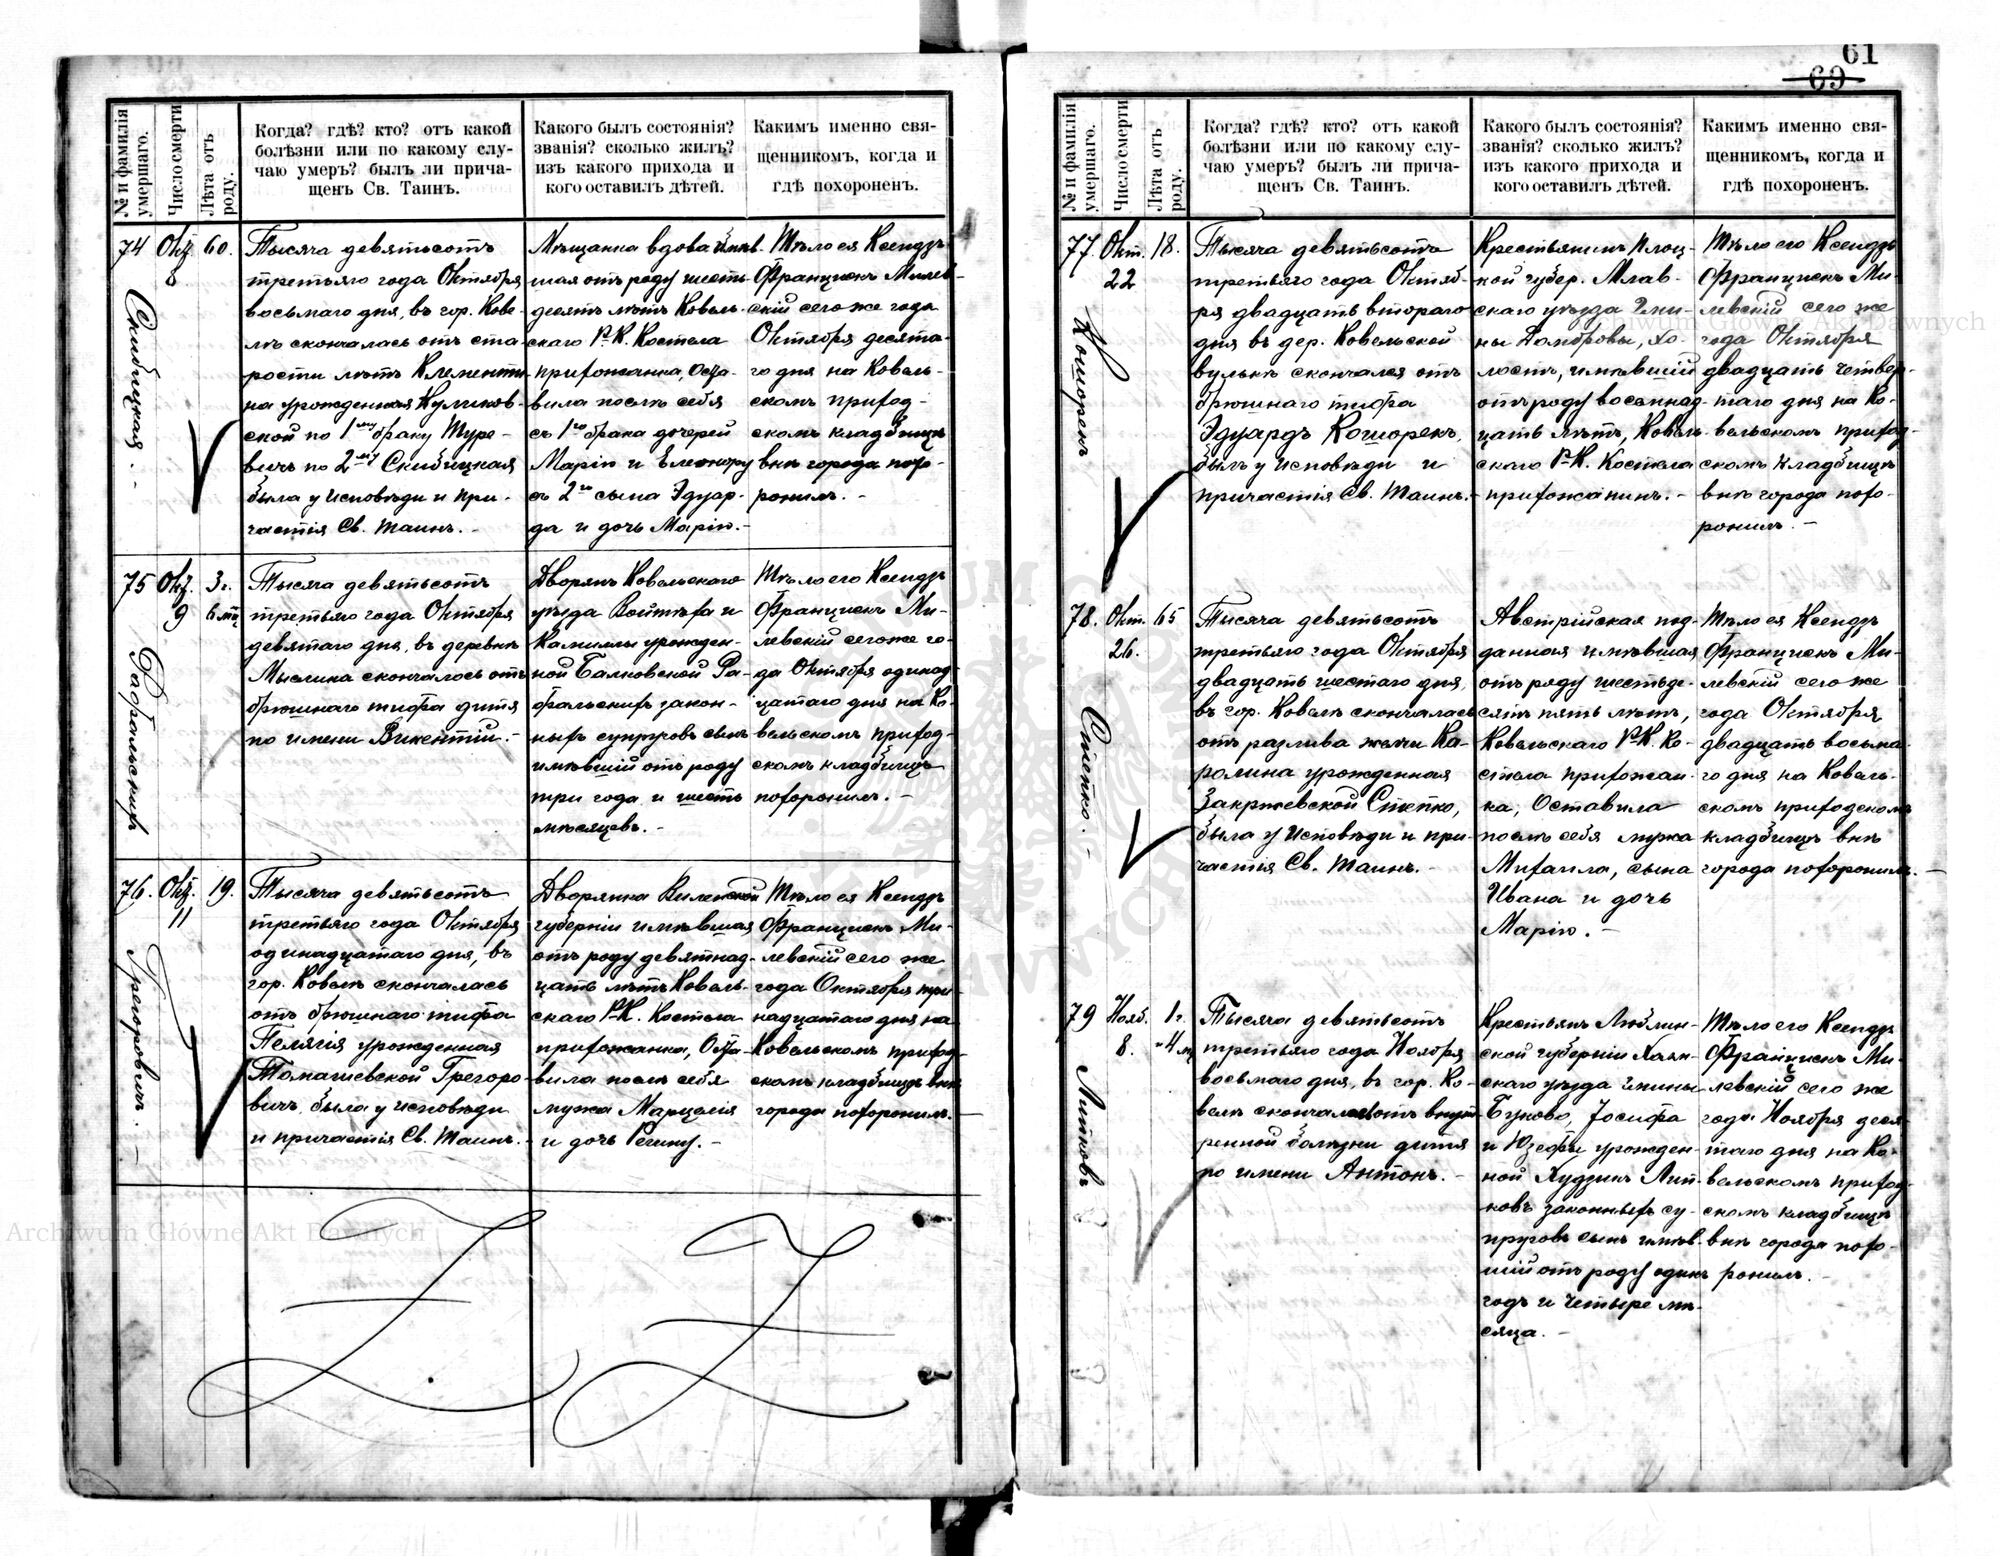 61
69
№ и фамилія умершаго.
Число смерти
Лѣта отъ роду.
Когда? гдѣ? кто? отъ какой
болѣзни или по какому слу-
чаю умеръ? былъ ли прича-
щенъ Св. Таинъ.
Какого былъ состоянія?
званія? сколько жилъ?
изъ какого прихода и
кого оставилъ дѣтей.
Какимъ именно свя-
щенникомъ, когда и
гдѣ похороненъ.
74
Скибицкая.
Окт.
8
60.
Тысяча девятьсотъ
третьяго года Октября
восьмаго дня, въ гор. Кове-
лѣ скончалась отъ ста-
рости лѣтъ Клементи-
на урожденная Куликов-
ской по 1му браку Туре-
вичъ по 2му Скибицкая
была у исповѣди и при-
частія Св. Таинъ. -
Мѣщанка вдова имѣв-
шая отъ роду шесть-
десятъ лѣтъ Ковель-
скаго Р-К. Костела
прихожанка, Оста-
вила послѣ себя
съ 1го брака дочерей
Марію и Елеонору
съ 2го сына Эдуар-
да и дочь Марію. -
Тѣло ея Ксендзъ
Францискъ Милев-
скій сего же года
Октября десята-
го дня на Ковель-
скомъ приход-
скомъ кладбищѣ
внѣ города похо-
ронилъ. -
75
Рафальскихъ
Окт.
9
3 г.
6 мц
Тысяча девятьсотъ
третьяго года Октября
девятаго дня, въ деревнѣ
Мыслина скончалось отъ
брюшнаго тифа дитя
по имени Викентій. -
Дворянъ Ковельскаго
уѣзда Войтѣха и
Камиллы урожден-
ной Балковской Ра-
фальскихъ закон-
ныхъ супруговъ сынъ
имѣвшій отъ роду
три года и шесть
мѣсяцевъ. -
Тѣло его Ксендзъ
Францискъ Ми-
левскій сего же го-
да Октября одинад-
цатаго дня на Ко-
вельскомъ приход-
скомъ кладбищѣ
похоронилъ. -
76.
Грегоровичъ. -
Окт.
11
19.
Тысяча девятьсотъ
третьяго года Октября
одинадцатаго дня, въ
гор. Ковелѣ скончалась
отъ брюшнаго тифа
Пелягія урожденная
Томашевской Грегоро-
вичъ, была у исповѣди
и причастія Св. Таинъ. -
Дворянка Виленской
губерніи имѣвшая
отъ роду девятнад-
цать лѣтъ Ковель-
скаго Р-К. Костела
прихожанка, Оста-
вила послѣ себя
мужа Марцелія
и дочь Регину. -
Тѣло ея Ксендзъ
Францискъ Ми-
левскій сего же
года Октября три-
надцатаго дня на
Ковельскомъ приход-
скомъ кладбищѣ внѣ
города похоронилъ. -
№ и фамилія умершаго.
Число смерти
Лѣта отъ роду.
Когда? гдѣ? кто? отъ какой
болѣзни или по какому слу-
чаю умеръ? былъ ли прича-
щенъ Св. Таинъ.
Какого былъ состоянія?
званія? сколько жилъ?
изъ какого прихода и
кого оставилъ дѣтей.
Какимъ именно свя-
щенникомъ, когда и
гдѣ похороненъ.
77.
Кошорекъ
Окт.
22
18.
Тысяча девятьсотъ
третьяго года Октяб-
ря двадцать втораго
дня въ дер. Ковельской
вулькѣ скончался отъ
брюшнаго тифа
Эдуардъ Кошорекъ,
былъ у исповѣди и
причастія Св. Таинъ. -
Крестьянинъ Плоц-
кой губер. Млав-
скаго уѣзда Гми-
ны Домбровы, хо-
лостъ, имѣвшій
отъ роду восемнад-
цать лѣтъ, Ковель-
скаго Р-К. Костела
прихожанинъ. -
Тѣло его Ксендзъ
Францискъ Ми-
левскій сего же
года Октября
двадцать четвер-
таго дня на Ко-
вельскомъ приход-
скомъ кладбищѣ
внѣ города похо-
ронилъ. -
78.
Стетко. -
Окт.
26.
65
Тысяча девятьсотъ
третьяго года Октября
двадцать шестаго дня,
въ гор. Ковелѣ скончалась
отъ разлива желчи Ка-
ролина урожденная
Закржевской Стетко,
была у исповѣди и при-
частія Св. Таинъ. -
Австрійская под-
данная имѣвшая
отъ роду шестьде-
сятъ пять лѣтъ,
Ковельскаго Р-К. Ко-
стела прихожан-
ка, Оставила
послѣ себя мужа
Михаила, сына
Ивана и дочь
Марію. -
Тѣло ея Ксендзъ
Францискъ Ми-
левскій сего же
года Октября
двадцать восьма-
го дня на Ковель-
скомъ приходскомъ
кладбищѣ внѣ
города похоронилъ. -
79
Литковъ
Нояб.
8.
1 г.
4 м
Тысяча девятьсотъ
третьяго года Ноября
восьмаго дня, въ гор. Ко-
велѣ скончалось отъ внут-
ренной болѣзни дитя
по имени Антонъ. -
Крестьянъ Люблин-
ской губерніи Холм-
скаго уѣзда гмины
Буково, Іосифа
и Юзефы урожден-
ной Худзикъ Лит-
ковъ законныхъ су-
пруговъ сынъ имѣв-
шій отъ роду одинъ
годъ и четыре мѣ-
сяца. -
Тѣло его Ксендзъ
Францискъ Ми-
левскій сего же
года Ноября деся-
таго дня на Ко-
вельскомъ приход-
скомъ кладбищѣ
внѣ города похо-
ронилъ. -
Archiwum Główne Akt Dawnych
Archiwum Główne Akt Dawnych